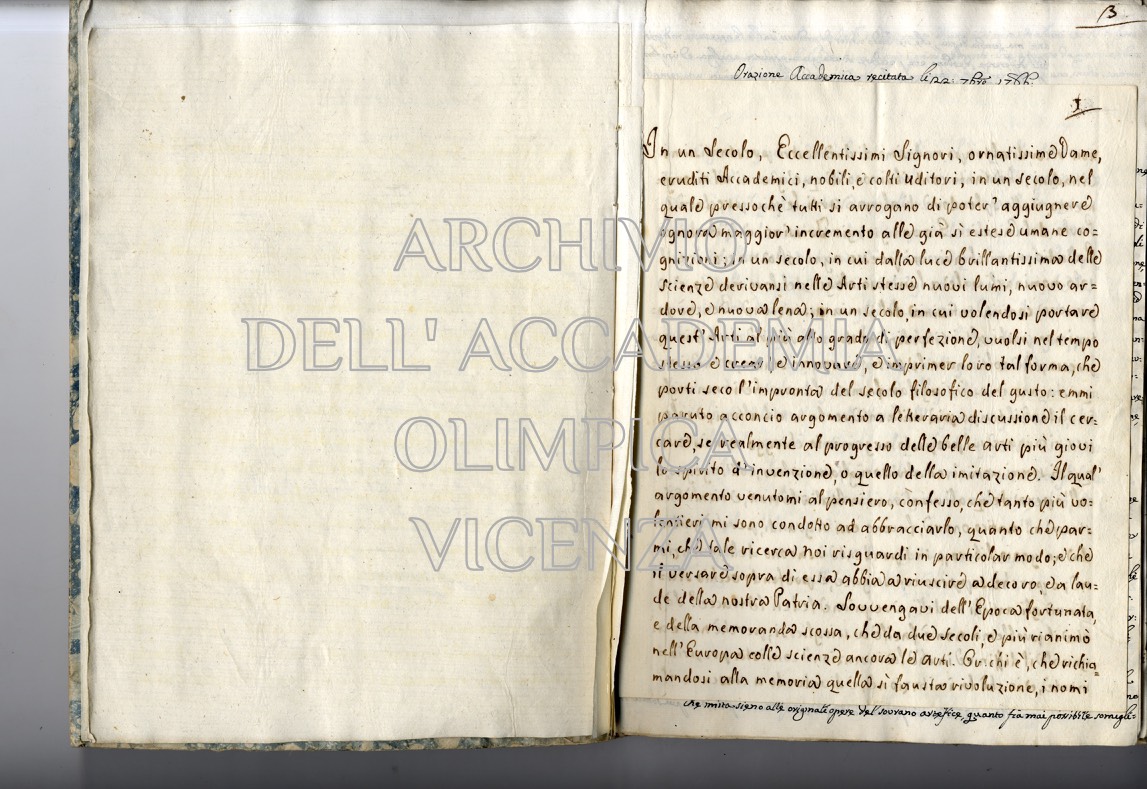 3
Orazione Accademica recitata li 22: 7bre 17
1
In un secolo, Eccellentissimi Signori, ornatissime Dame,
eruditi Accademici, nobili, e colti Uditori, in un secolo, nel
quale pressochè tutti si arrogano di poter' aggiugnere
ognora maggior' incremento alle già sì estese umane co=
gnizioni; in un secolo, in cui dalla luce brillantissima delle
scienze derivansi nelle Arti stesse nuovi lumi, nuovo ar=
dore, e nuova lena; in un secolo, in cui volendosi portare
quest' Arti al più alto grado di perfezione, vuolsi nel tempo
stesso e creare e innovare, e imprimer loro tal forma, che
porti seco l'impronta del secolo filosofico del gusto: emmi
paruto acconcio argomento a letteraria discussione il cer=
care, se realmente al progresso delle belle arti più giovi
lo spirito d'invenzione, o quello della imitazione. Il qual'
argomento venutomi al pensiero, confesso, che tanto più vo=
lentieri mi sono condotto ad abbracciarlo, quanto che par=
mi, che tale ricerca noi risguardi in particolar modo; e che
il versare sopra di essa abbia a riuscire a decoro, e a lau=
de della nostra Patria. Sovvengavi dell'Epoca fortunata,
e della memoranda scossa, che da due secoli, e più rianimò
nell'Europa colle scienze ancora le arti. Or chi è, che richia=
mandosi alla memoria quella sì fausta rivoluzione, i nomi
che mista sieno alle originali opere del sovrano artefice, quanto fia mai possibile somigli=
ARCHIVIO
DELL' ACCADEMIA
OLIMPICA
VICENZA